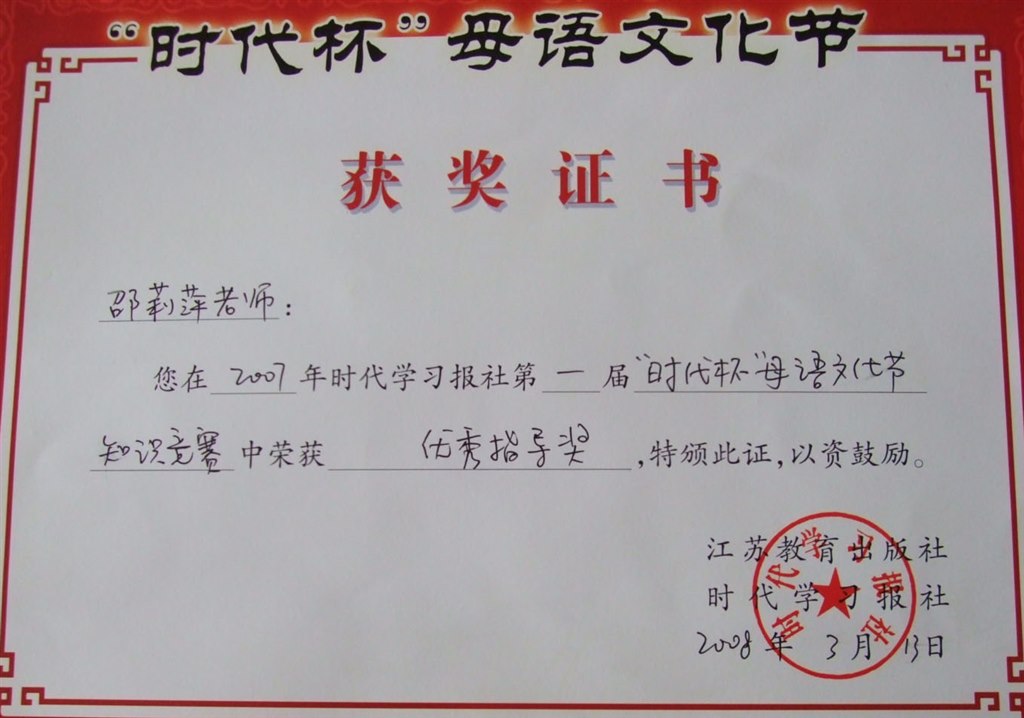 “时代杯”母语文化节
获奖证书
邵莉萍老师：
您在 2007 年时代学习报社第 一 届“时代杯”母语文化节
知识竞赛 中荣获 优秀指导奖 ，特颁此证，以资鼓励。
江苏教育出版社
时代学习报社
2008 年 3 月 13 日
时代学习报社